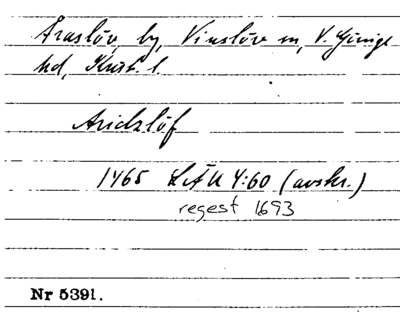 Araslöv by, Vinslöv sn, V. Göinge
hd, Krist. l.
Aridzlöf
1465 LÄU 4:60 (avskr.)
regest 1693
Nr 5391.